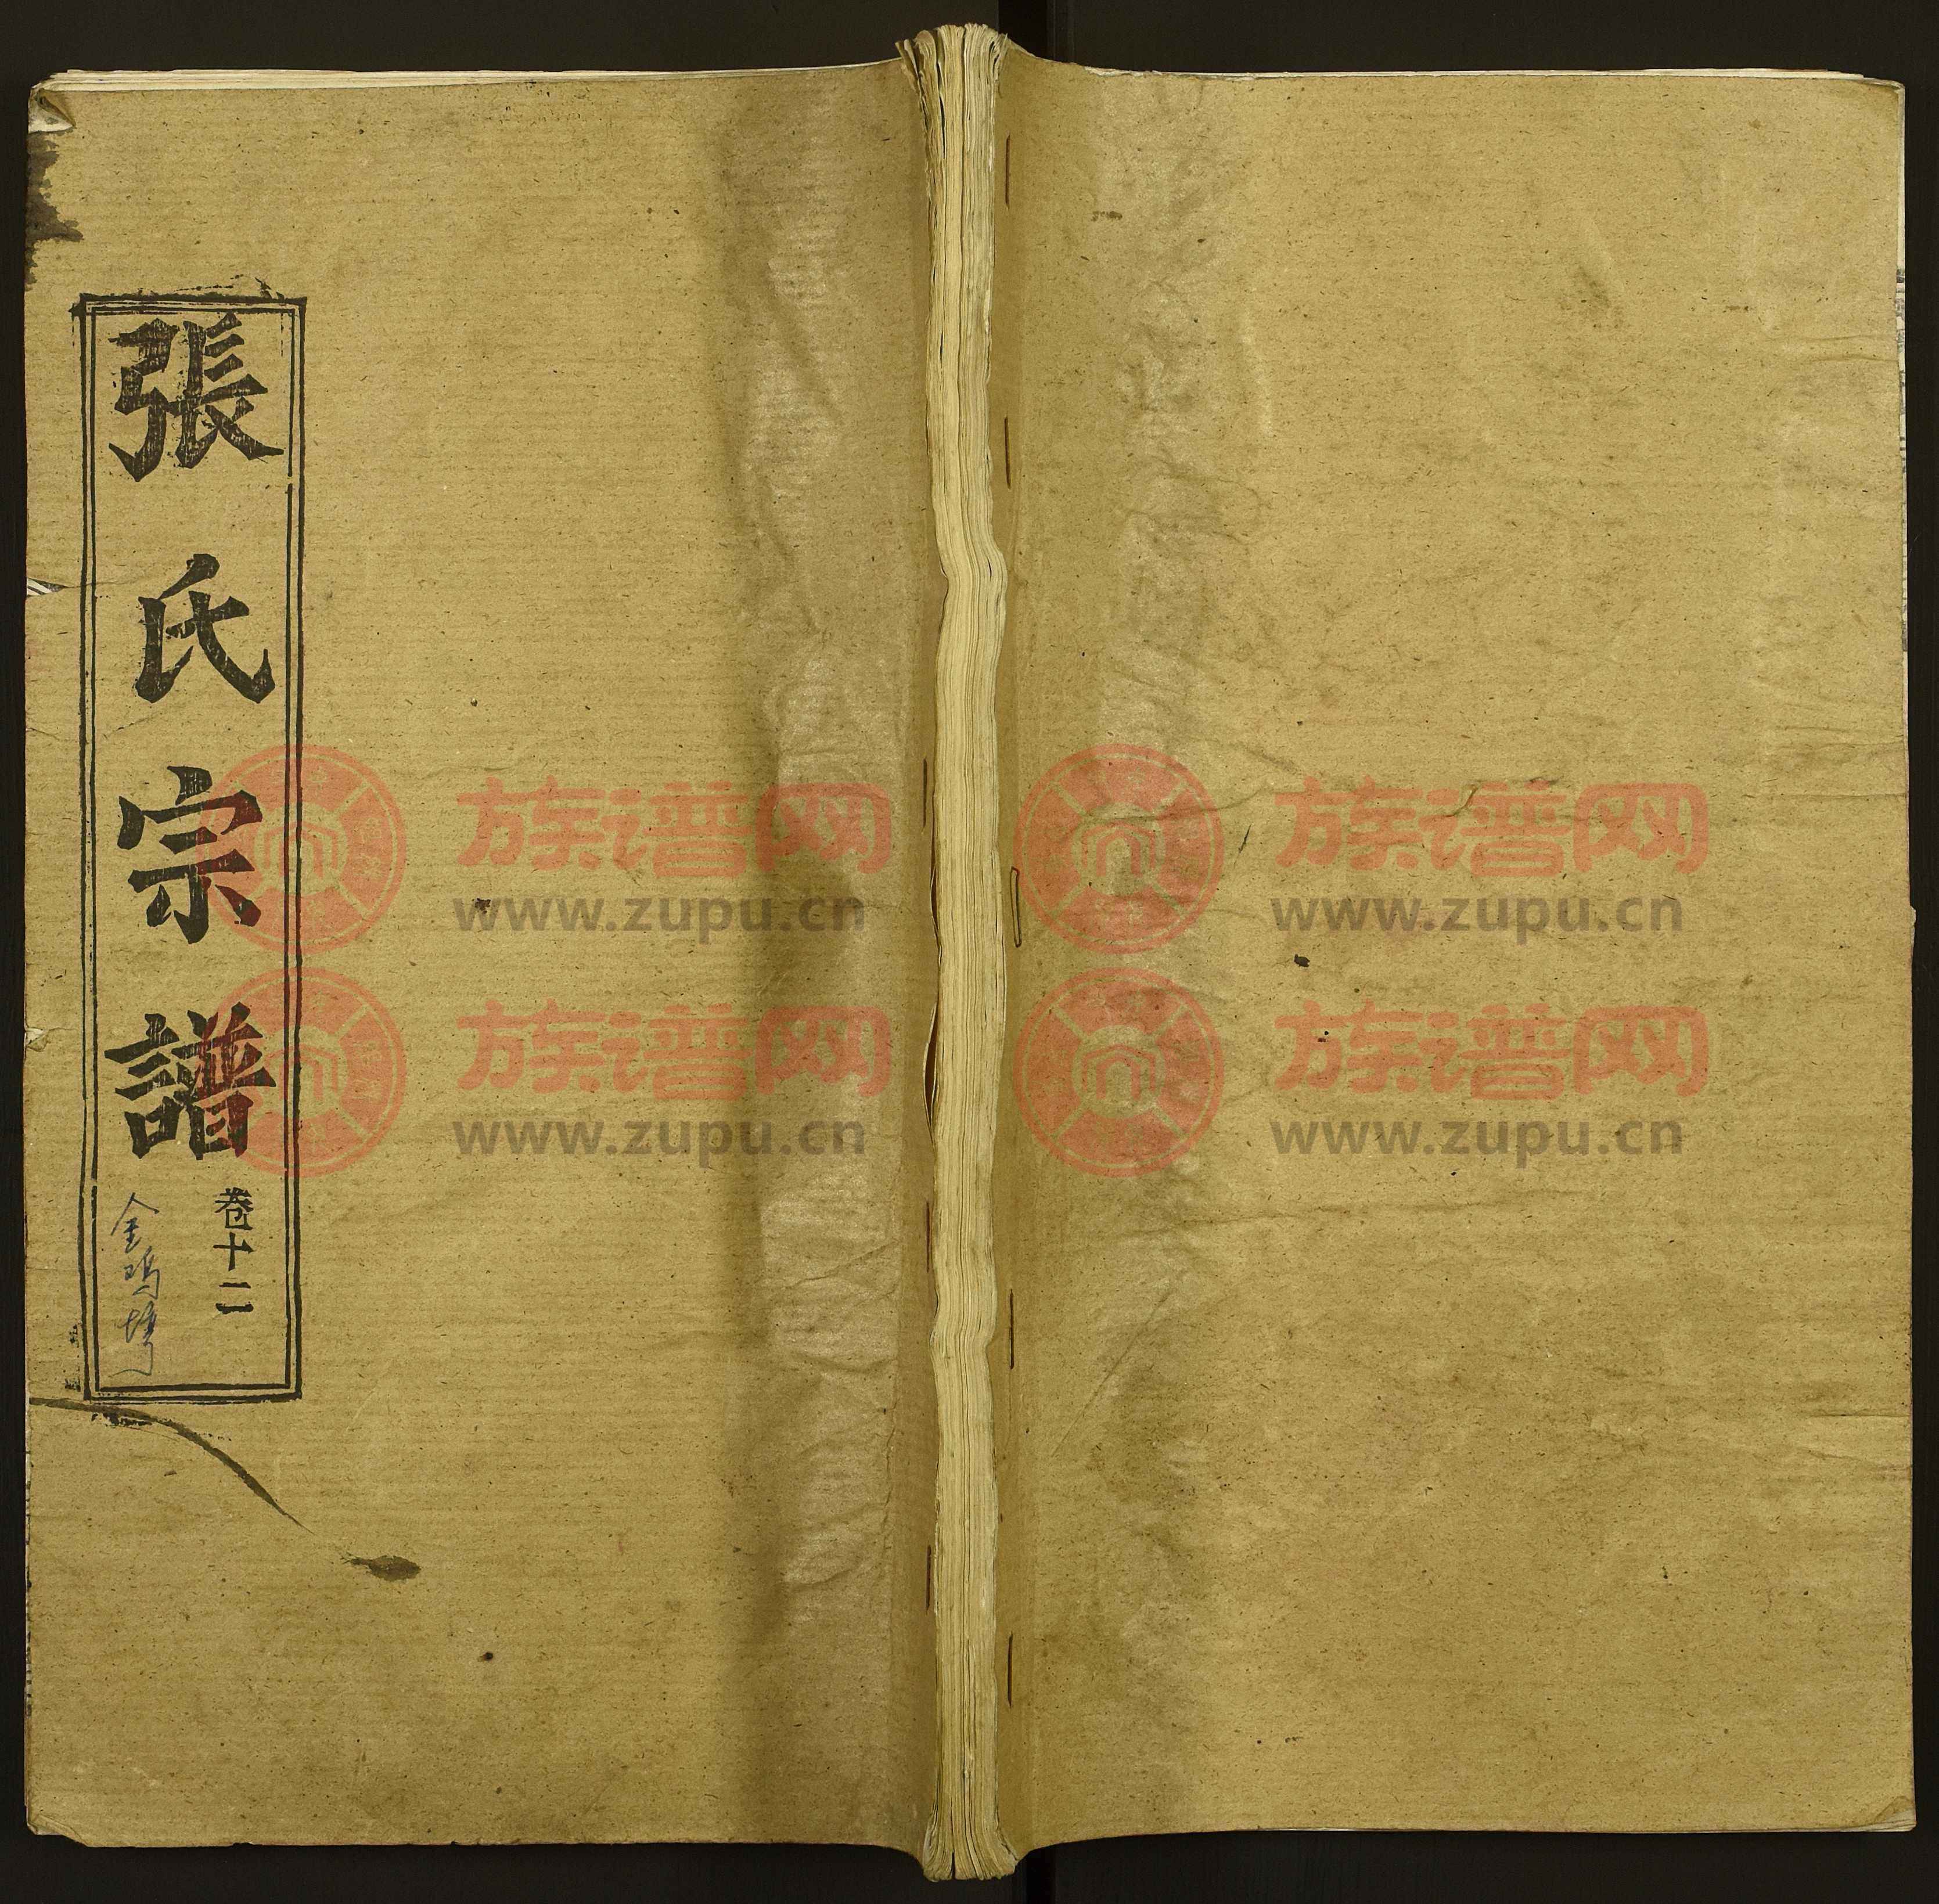 張氏宗譜
卷十二
金鸡塆
族谱网
www.zupu.cn
族谱网
www.zupu.cn
族谱网
www.zupu.cn
族谱网
www.zupu.cn